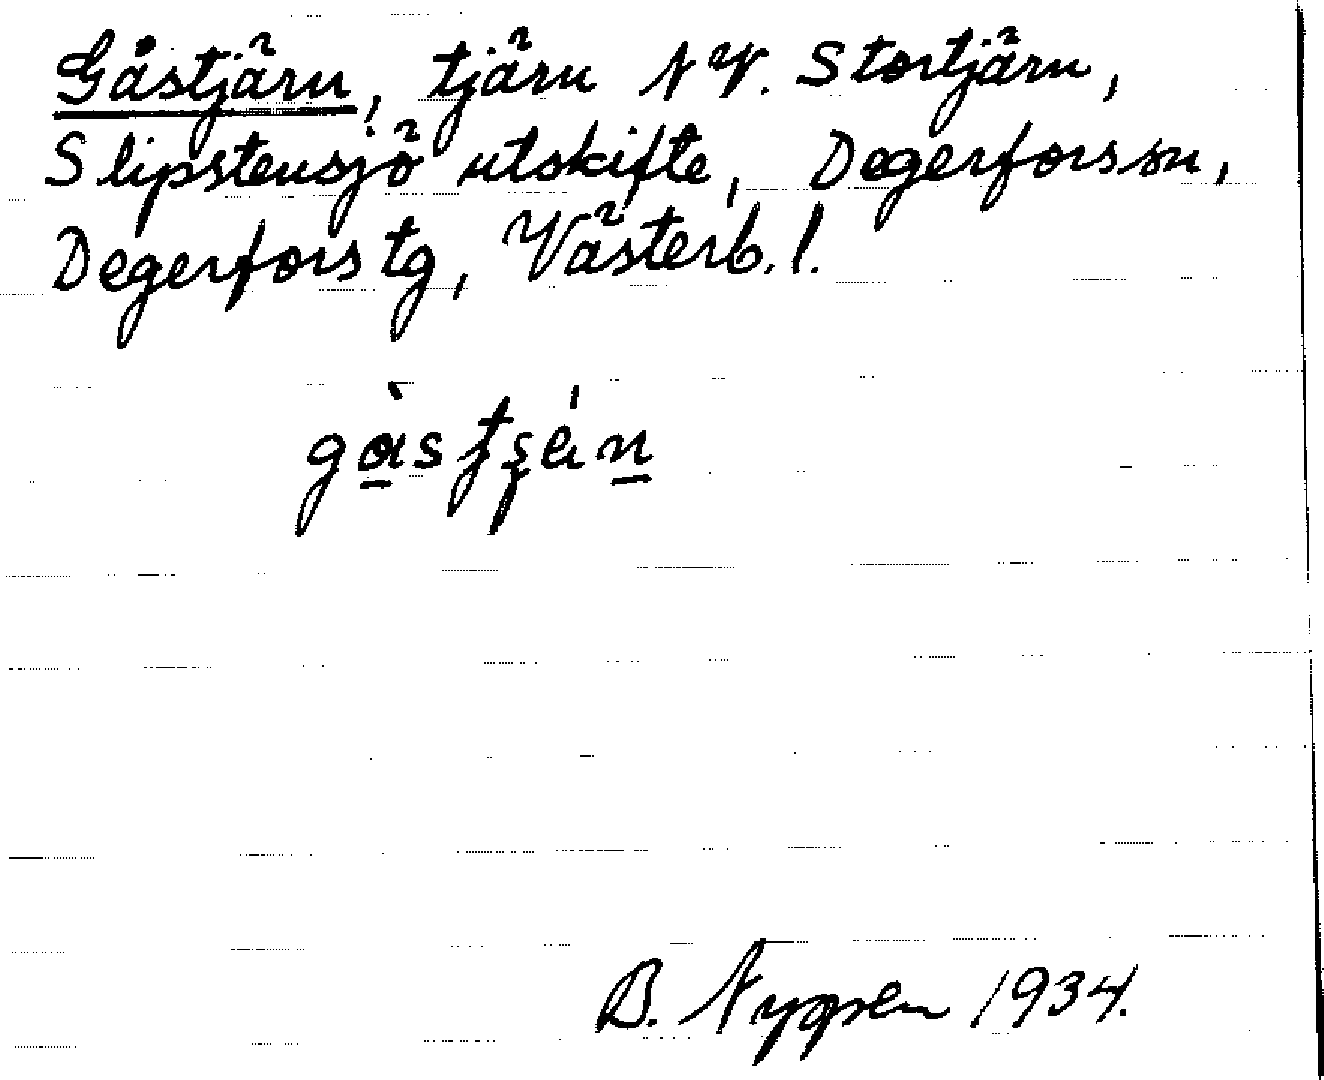 Gåstjärn, tjärn NV. Stortjärn,
Slipstensjö utskifte, Degerfors sn,
Degerfors tg, Västerb. l.
B. 1934.